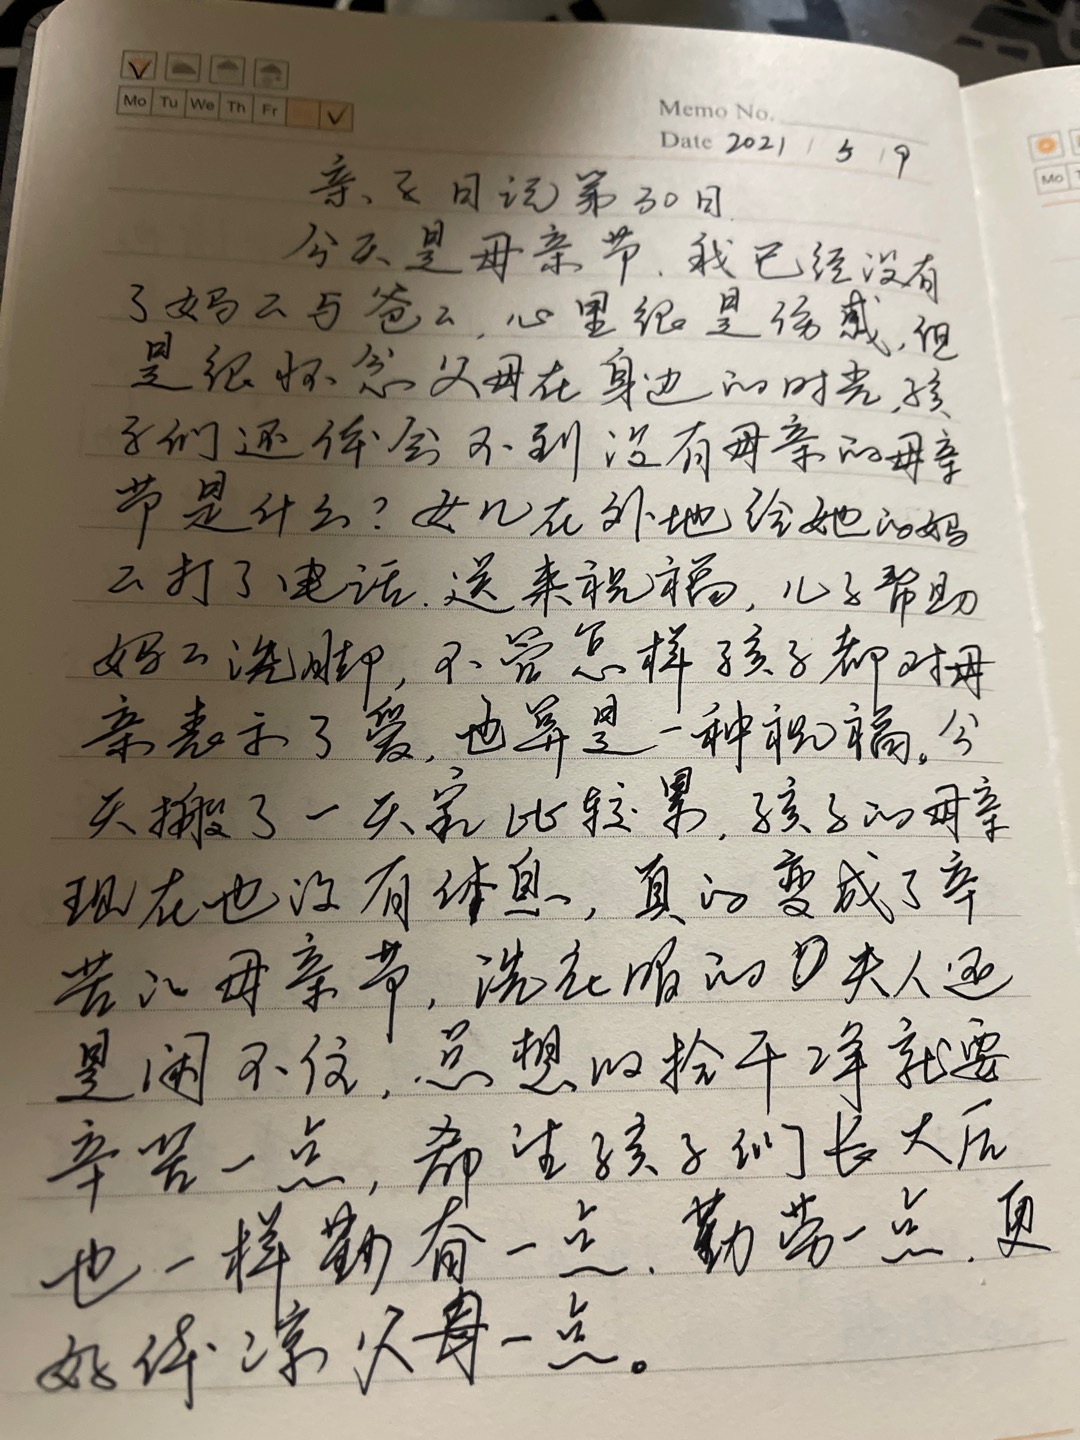 Mo Tu We Th Fr
Memo No.
Date 2021 / 5 / 9
Mo
亲子日记第30日
今天是母亲节.我已经没有
了妈厶与爸厶,心里很是伤感,但
是很怀念父母在身边的时光,孩
子们还体会不到没有母亲的母亲
节是什么?女儿在外地给她的妈
厶打了电话.送来祝福,儿子帮助
妈厶洗脚,不管怎样孩子都对母
亲表示了爱,也算是一种祝福。今
天搬了一天家比较累,孩子的母亲
现在也没有休息,真的变成了辛
苦的母亲节,洗衣服的 夫人还
是闲不住,总想收拾干净就要
辛苦一点,希望孩子们长大后
也一样勤奋一点、勤劳一点、更
好体凉父母一点。